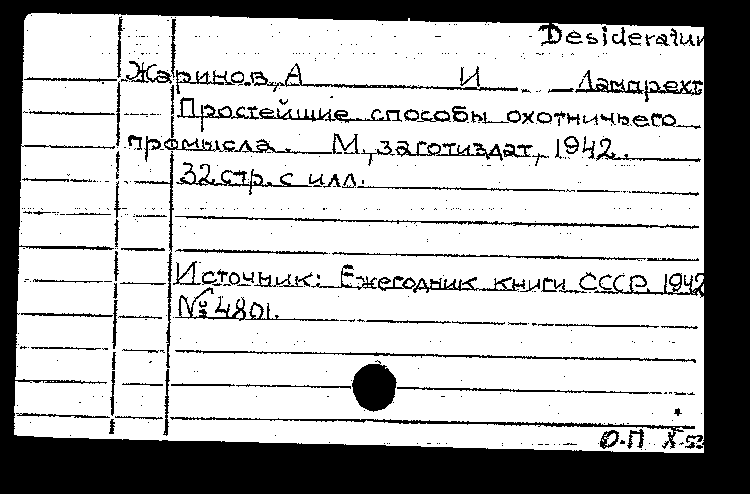 Desideratum
Жаринов, А И Лампрехт
Простейшие способы охотничьего
промысла. М., заготиздат, 1942.
32 стр. с илл.
Источник: Ежегодник книги СССР. 1942
№ 4801.
О.П X-53